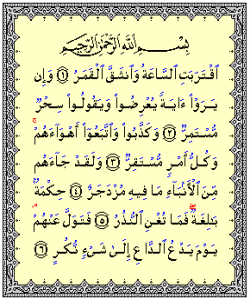 بِسْمِ ٱللَّهِ ٱلرَّحْمَٰنِ ٱلرَّحِيمِ
ٱقْتَرَبَتِ ٱلسَّاعَةُ وَٱنشَقَّ ٱلْقَمَرُ ١ وَإِن
يَرَوْا۟ ءَايَةً يُعْرِضُوا۟ وَيَقُولُوا۟ سِحْرٌ
مُّسْتَمِرٌّ ٢ وَكَذَّبُوا۟ وَٱتَّبَعُوٓا۟ أَهْوَآءَهُمْ ۚ
وَكُلُّ أَمْرٍ مُّسْتَقِرٌّ ٣ وَلَقَدْ جَآءَهُم
مِّنَ ٱلْأَنۢبَآءِ مَا فِيهِ مُزْدَجَرٌ ٤ حِكْمَةٌۢ
بَٰلِغَةٌ ۖ فَمَا تُغْنِ ٱلنُّذُرُ ٥ فَتَوَلَّ عَنْهُمْ ۘ
يَوْمَ يَدْعُ ٱلدَّاعِ إِلَىٰ شَىْءٍ نُّكُرٍ ٦